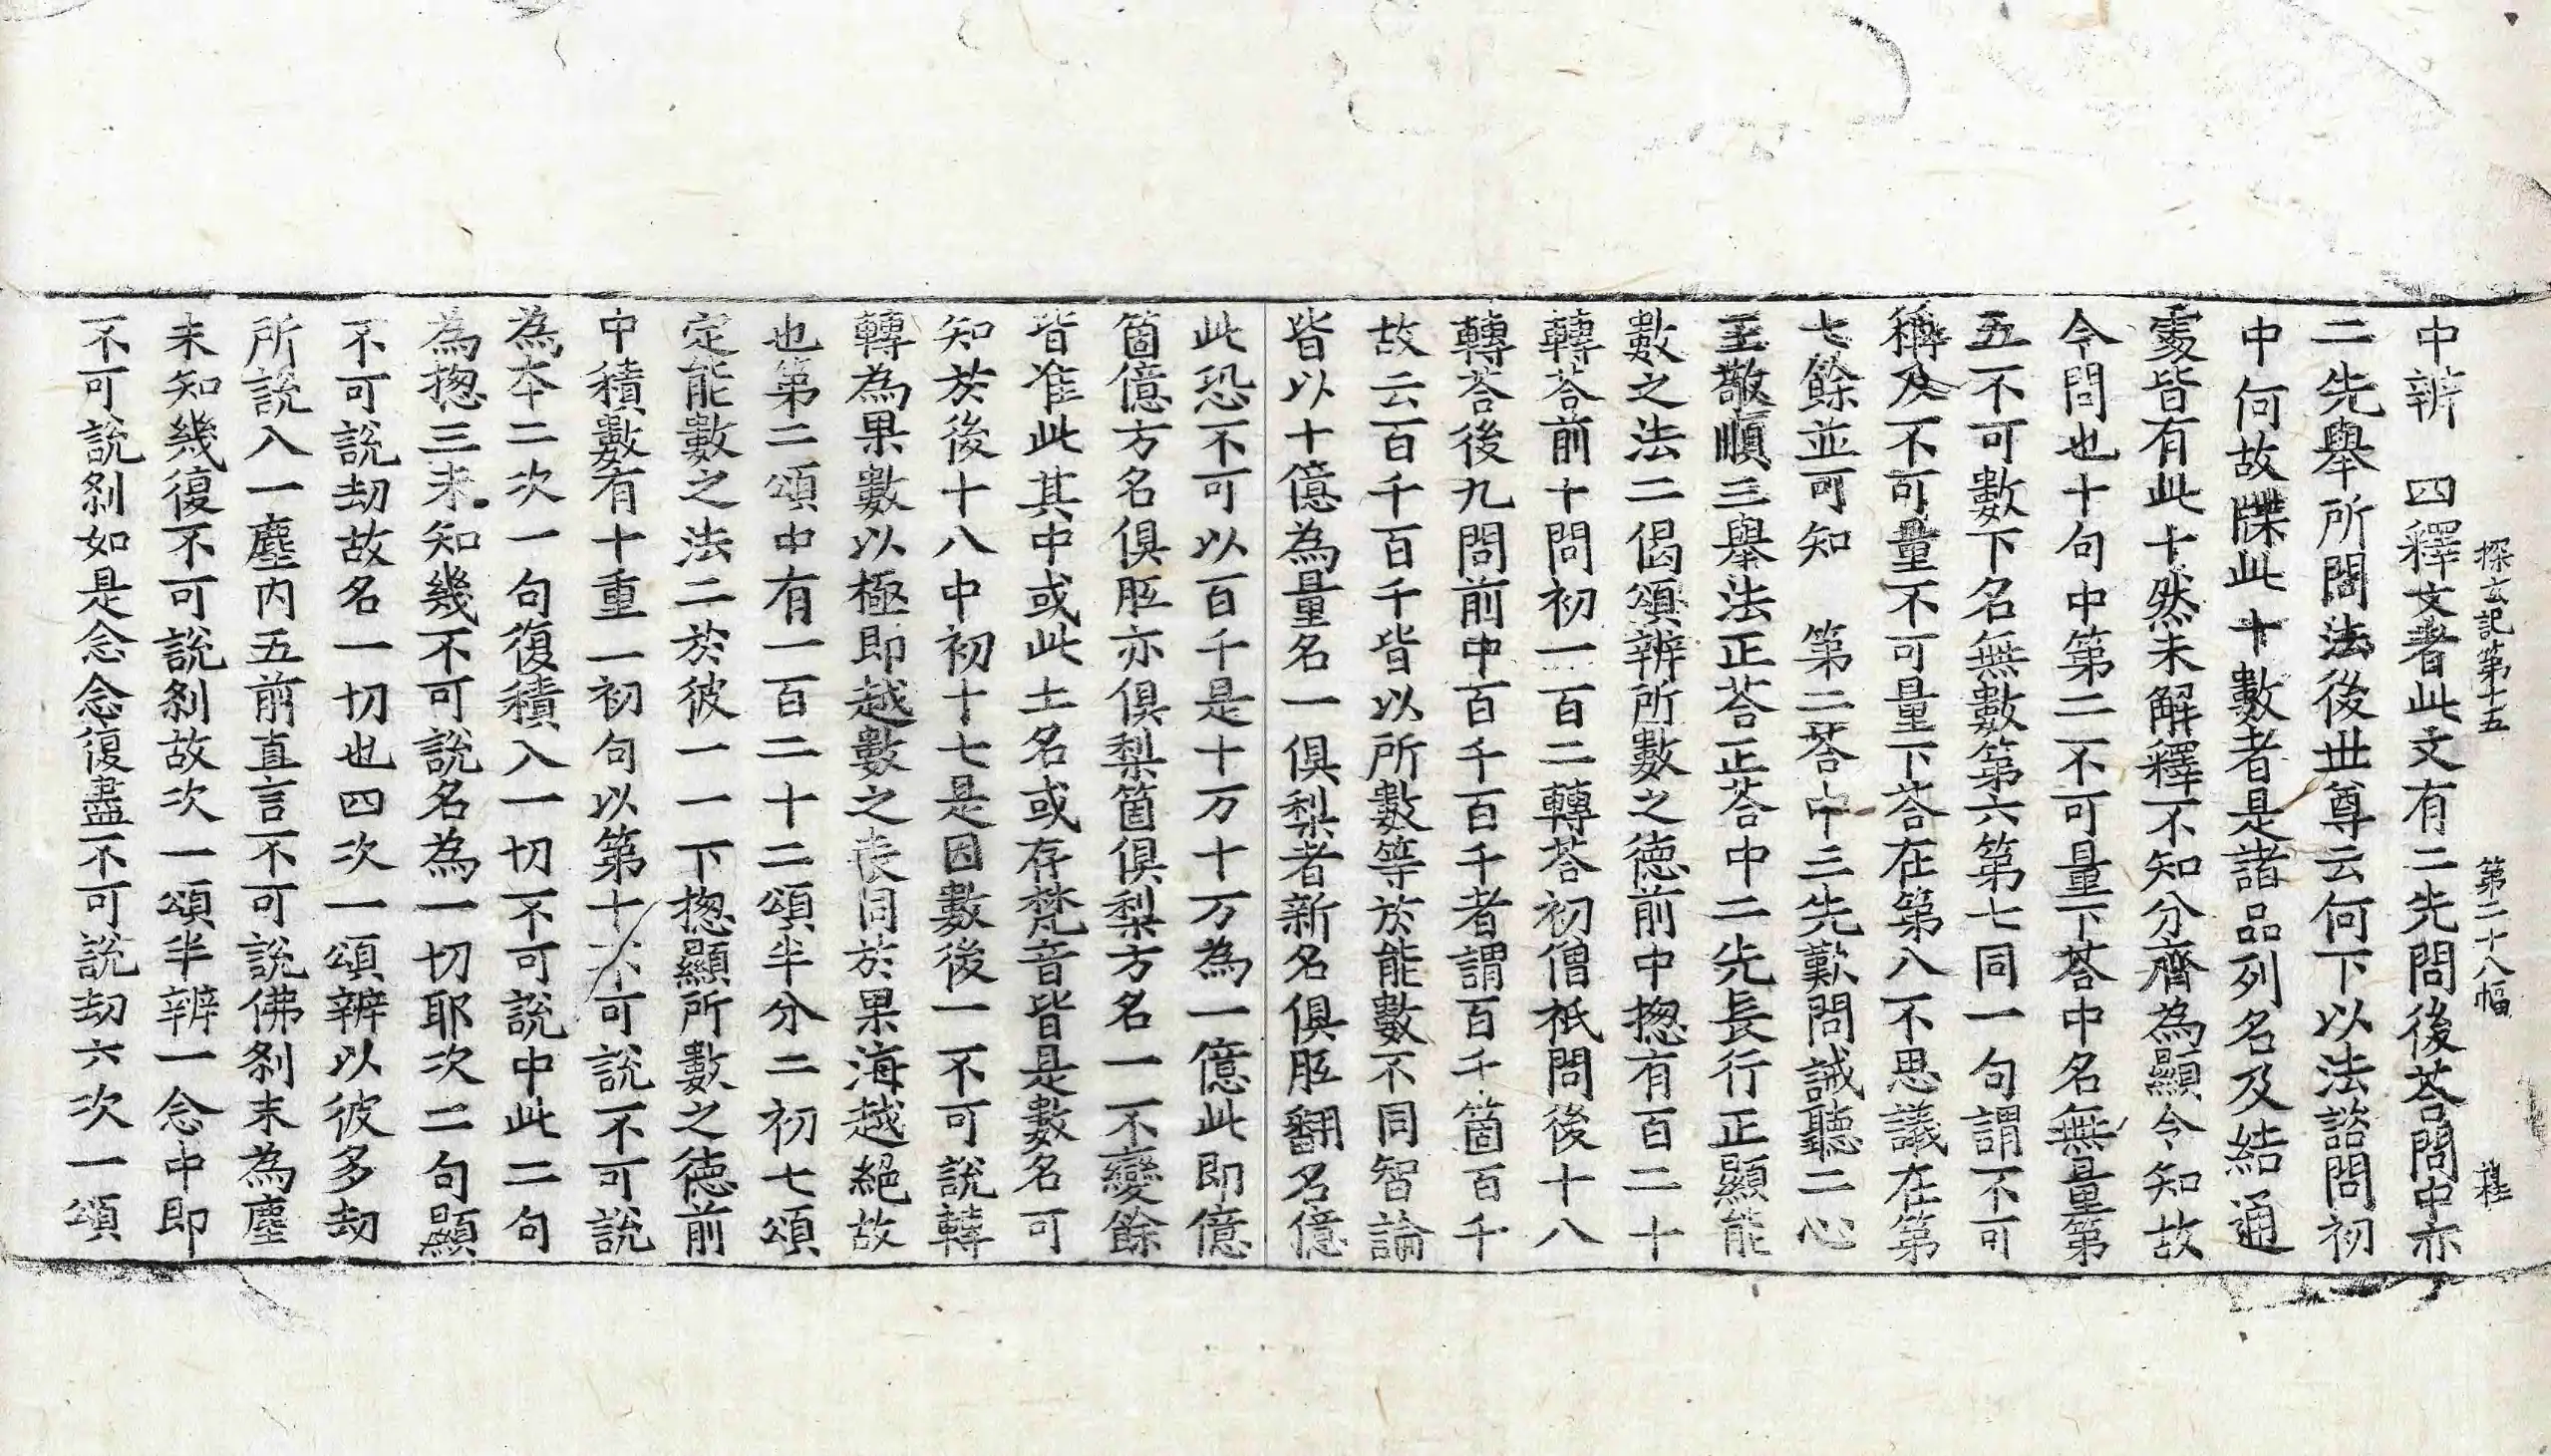 探玄記第十五 第二十八幅 𥡴
中辨 四釋文者此文有二先問後荅問中亦
二先舉所閡法後世尊云何下以法諮問初
中何故牒此十數者是諸品列名及結通
處皆有此十然未解釋不知分齊為顯令知故
今問也十句中第二不可量下荅中名無量第
五不可數下名無數第六第七同一句謂不可
稱及不可量不可量下荅在第八不思議在第
七餘並可知 第二荅中三先歎問誡聽二心
王敬順三舉法正荅正荅中二先長行正顯能
數之法二偈頌辨所數之德前中揔有百二十
轉荅前十問初一百二轉荅初僧祇問後十八
轉荅後九問前中百千百千者謂百千箇百千
故云百千百千皆以所數等於能數不同智論
皆以十億為量名一俱梨者新名俱胝翻名億
此恐不可以百千是十万十万為一億此即億
箇億方名俱胝亦俱梨箇俱梨方名一不變餘
皆准此其中或此土名或存梵音皆是數名可
知於後十八中初十七是因數後一不可說轉
轉為果數以極即越數之表同於果海越絕故
也第二頌中有一百二十二頌半分二初七頌
定能數之法二於彼一一下揔顯所數之德前
中積數有十重一初句以第十不可說不可說
為本二次一句復積入一切不可說中此二句
為揔三未知幾不可說名為一切耶次二句顯
不可說劫故名一切也四次一頌辨以彼多劫
所說入一塵内五前直言不可說佛剎末為塵
未知幾復不可說剎故次一頌半辨一念中即
不可說剎如是念念復盡不可說劫六次一頌